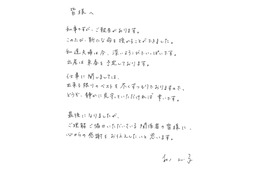 皆様へ
私事ですが、ご報告があります。
このたび、新しい命を授かることができました。
私達夫婦は今、深いよろこびでいっぱいです。
出産は来春を予定しております。
仕事に関しましては、
出来る限りベストを尽くすつもりでおりますので、
どうか、静かに見守っていただければ幸いです。
最後になりましたが、
ご理解ご協力いただいている関係者の皆様に、
心からの感謝をお伝えしたいと思います。